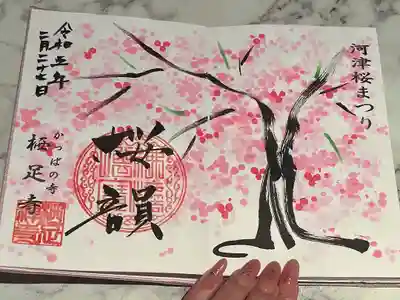 河津桜まつり
桜韻
かっぱの寺
栖足寺
令和五年
二月二十七日